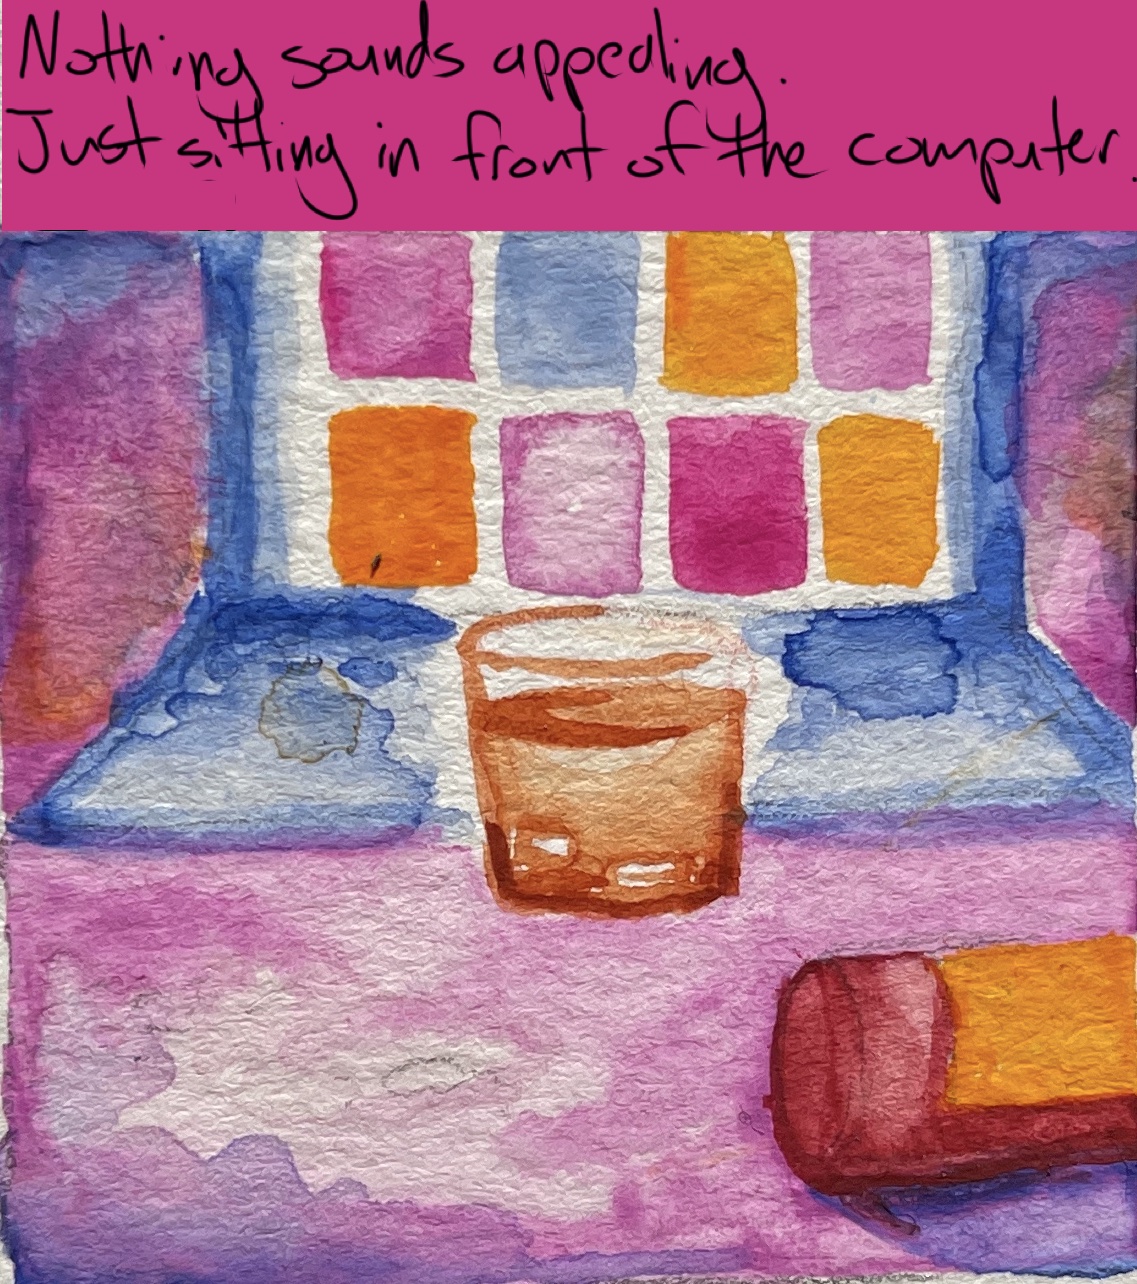 Nothing sounds appealing.
Just sitting in front of the computer.